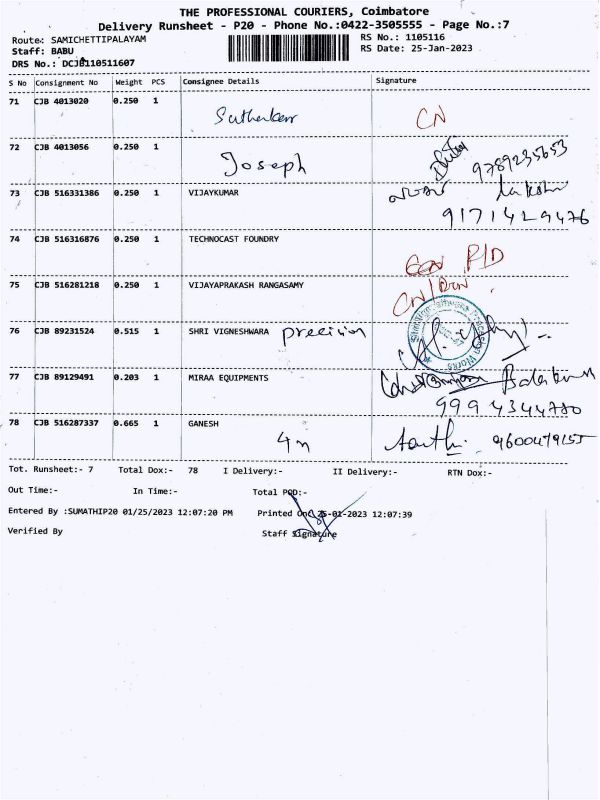 THE PROFESSIONAL COURIERS, Coimbatore
Delivery Runsheet - P20 - Phone No.:0422-3505555 - Page No.:7
Route: SAMICHETTIPALAYAM RS No.: 1105116
Staff: BABU RS Date: 25-Jan-2023
DRS No.: DCJB110511607
S No Consignment No Weight PCS Consignee Details Signature
71 CJB 4013020 0.250 1 CN
72 CJB 4013056 0.250 1 Joseph 9789235653
73 CJB 516331386 0.250 1 VIJAYKUMAR
9171429476
74 CJB 516316876 0.250 1 TECHNOCAST FOUNDRY P/D
75 CJB 516281218 0.250 1 VIJAYAPRAKASH RANGASAMY
76 CJB 89231524 0.515 1 SHRI VIGNESHWARA precision
77 CJB 89129491 0.203 1 MIRAA EQUIPMENTS
9994344780
78 CJB 516287337 0.665 1 GANESH
4 n 9600479155
Tot. Runsheet:- 7 Total Dox:- 78 I Delivery:- II Delivery:- RTN Dox:-
Out Time:- In Time:- Total POD:-
Entered By :SUMATHIP20 01/25/2023 12:07:20 PM Printed On: 25-01-2023 12:07:39
Verified By Staff Signature